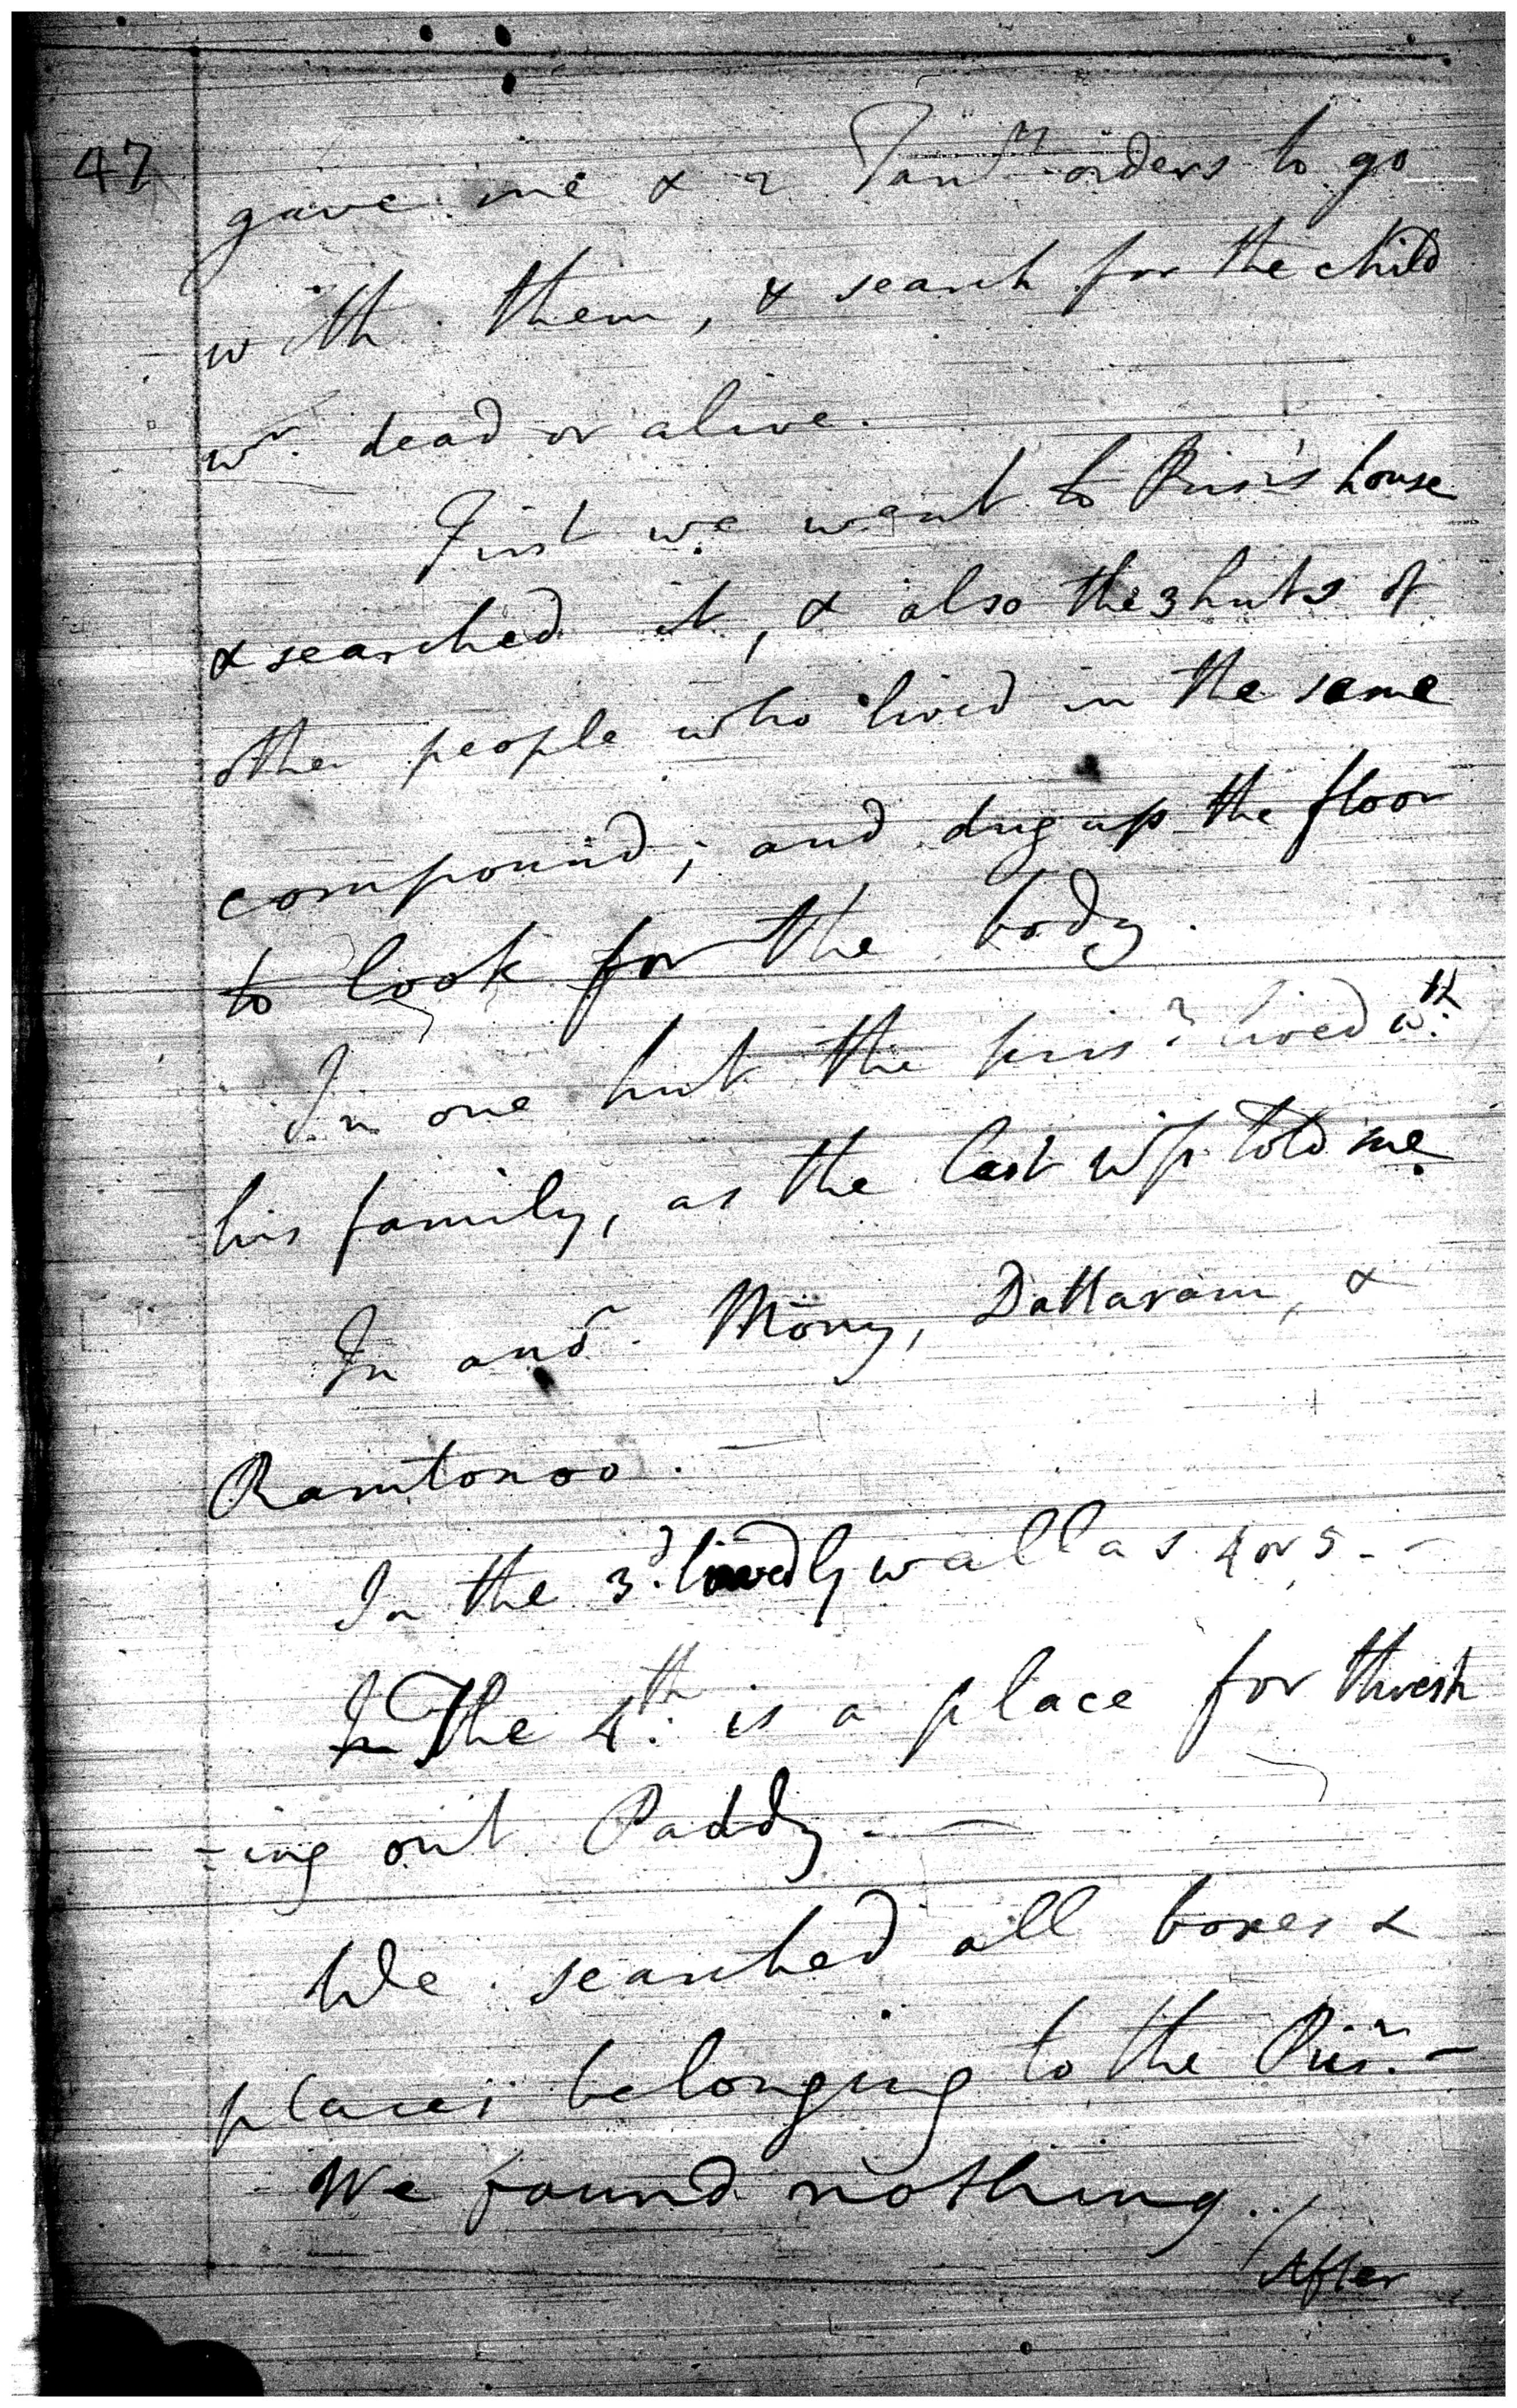 47
gave me & 2 orders to go
with them, & search for the child
wr. dead or alive.
First we went to Pris's house
& searched it, & also the 3 huts of
other people who lived in the same
compound; and dug up the floor
to look for the body.
In one hut the prisr lived wth
his family, as the last wss told me.
In anor. Mony, Dattaram, &
Ramtonoo.
In the 3d. lived wallas 4 or 5.-
In The 4th. is a place for thresh
-ing out Paddy.-
We searched all boxes &
places belonging to the Prisr.-
We found nothing./
After